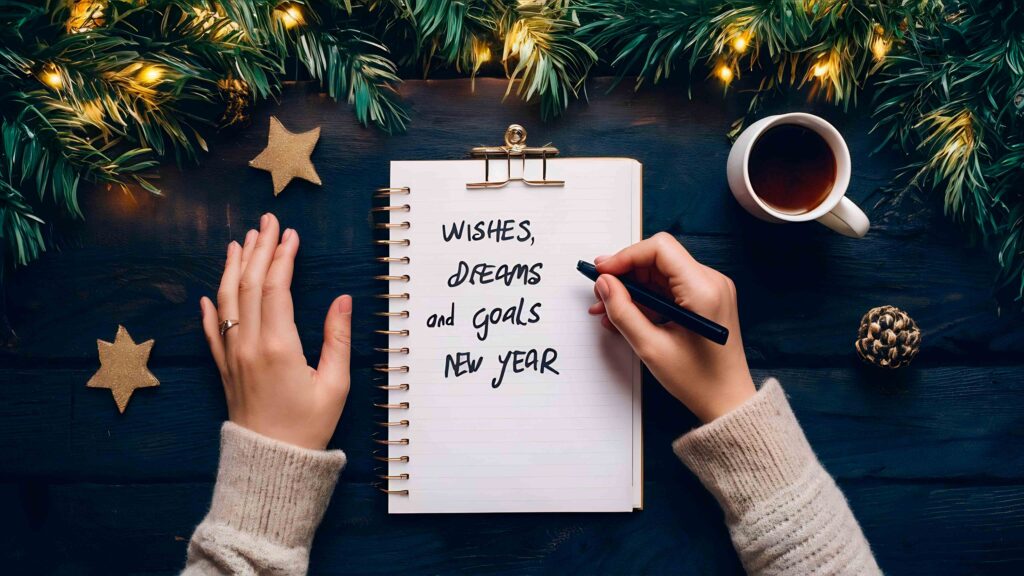 WISHES,
DREAMS
and goals
NEW YEAR